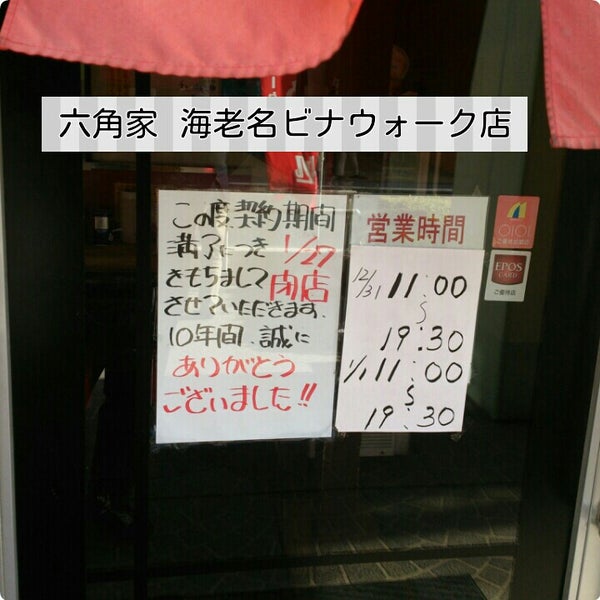 六角家 海老名ビナウォーク店
この度契約期間
満了につき 1/27
をもちまして閉店
させていただきます、
10年間、誠に
ありがとう
ございました!!
営業時間
12/31 11:00
~
19:30
1/1 11:00
~
19:30
OIOI
EPOS
CARD
ご優待店